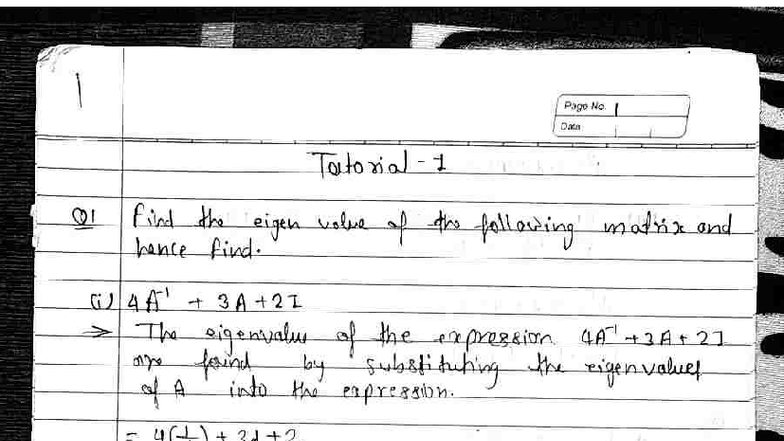 1
Page No. 1
Date
Tutorial - 1
Q1 Find the eigen value of the following matrix and
hence find.
(i) 4A⁻¹ + 3A + 2I
⇒ The eigenvalue of the expression 4A⁻¹ + 3A + 2I
are found by substituting the eigenvalues
of A into the expression.
= 4(1/λ) + 3λ + 2